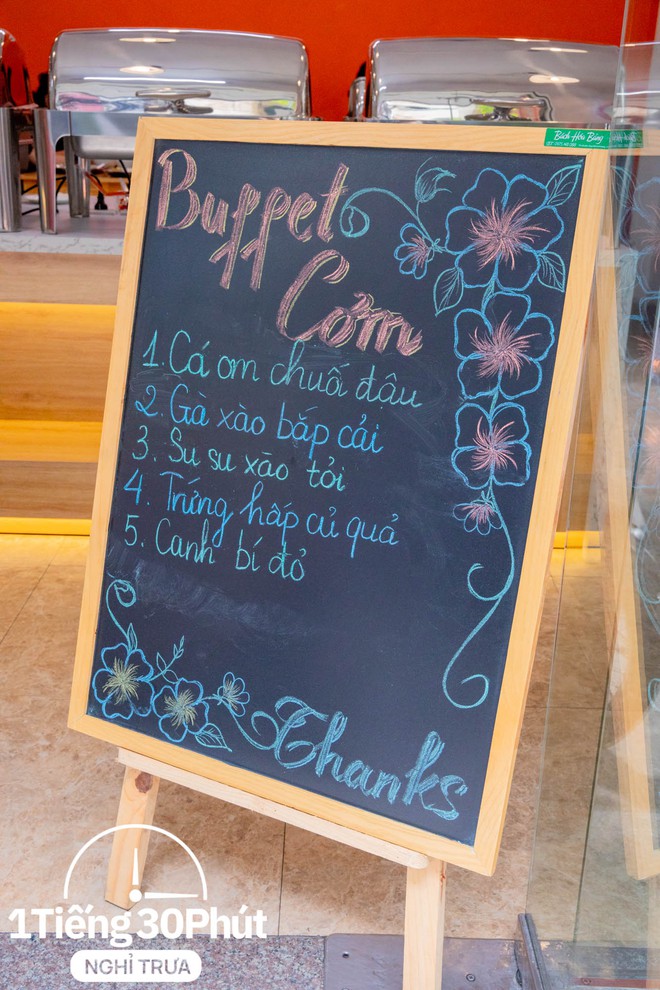 Bách Hóa Bảng
Buffet
Cơm
1. Cá om chuối đậu
2. Gà xào bắp cải
3. Su su xào tỏi
4. Trứng hấp củ quả
5. Canh bí đỏ
Thanks
1Tiếng 30Phút
NGHỈ TRƯA